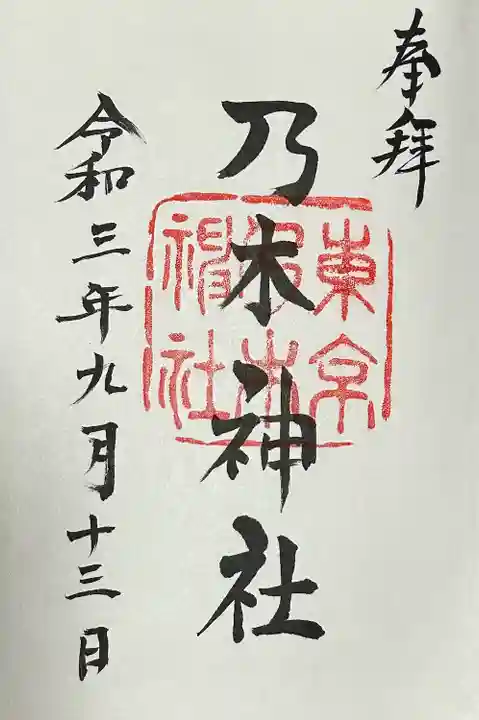 奉拝
乃木神社
東京
乃木
神社
令和三年九月十三日